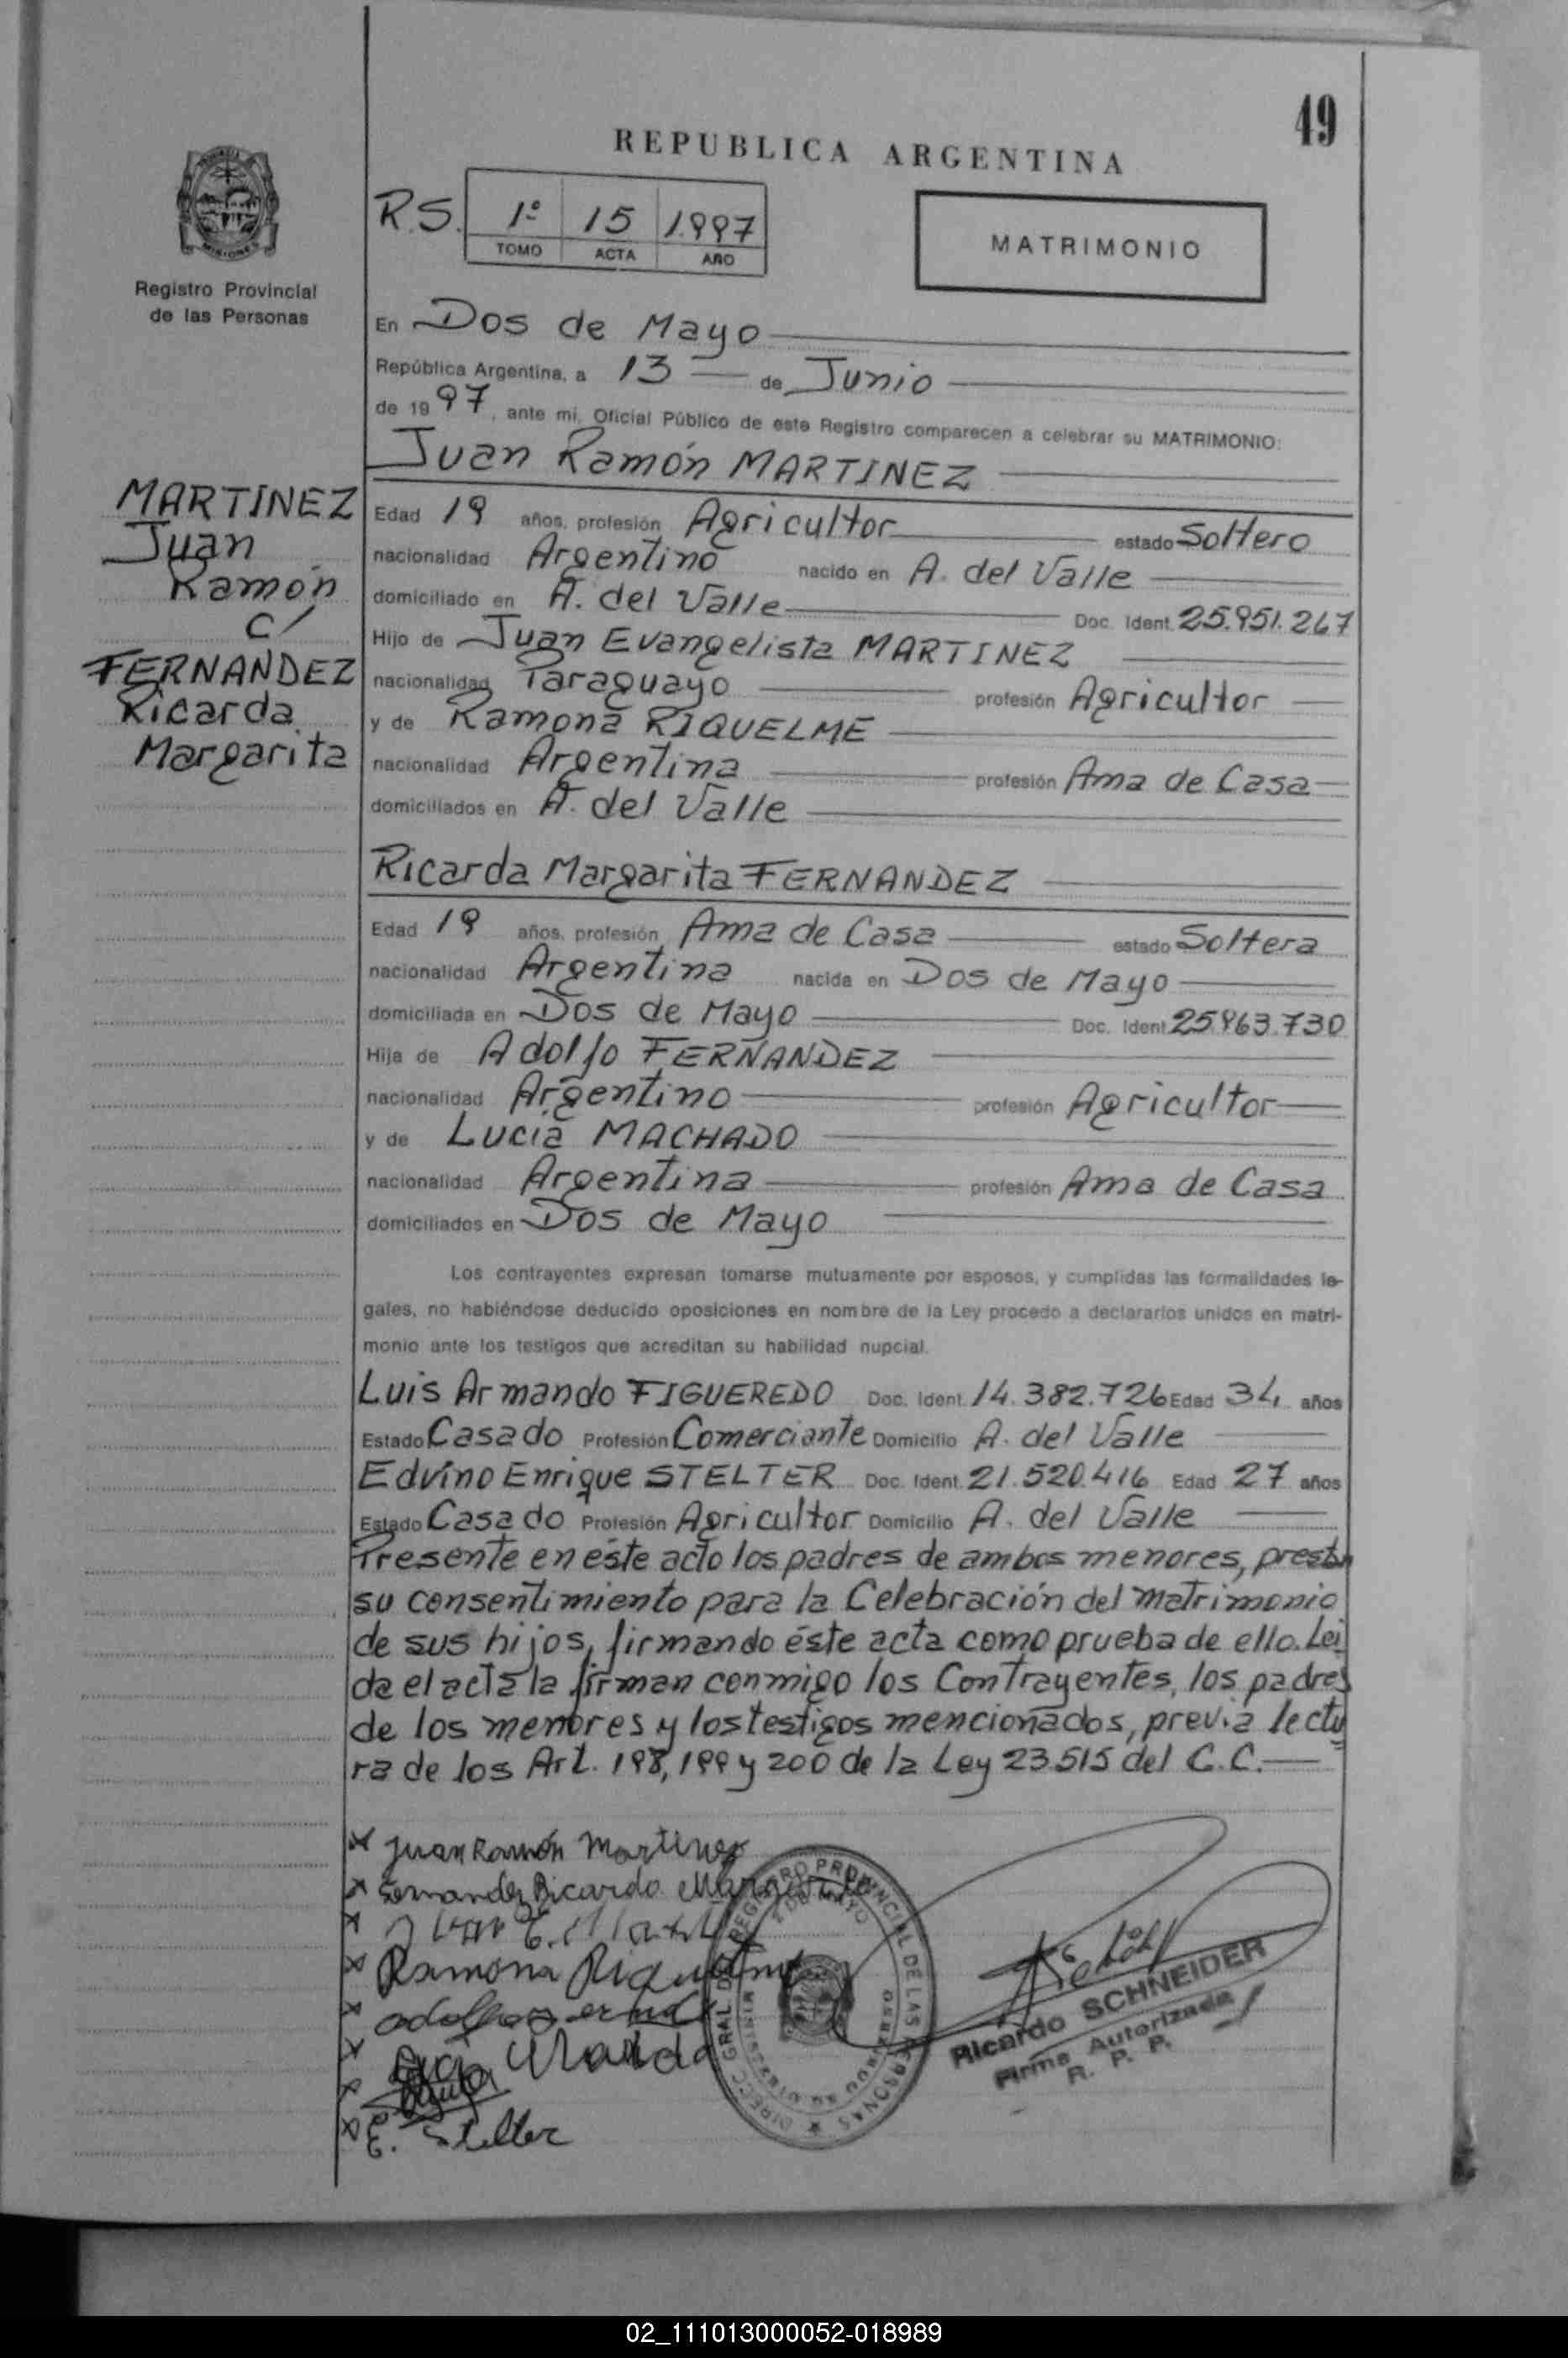 49
REPUBLICA ARGENTINA
R.S. 1º 15 1.997
TOMO ACTA AÑO
MATRIMONIO
Registro Provincial
de las Personas
En Dos de Mayo
República Argentina, a 13 de Junio
de 1997, ante mi, Oficial Público de este Registro comparecen a celebrar su MATRIMONIO:
Juan Ramón MARTINEZ
MARTINEZ
Juan
Ramón
C/
FERNANDEZ
Ricarda
Margarita
Edad 19 años, profesión Agricultor estado Soltero
nacionalidad Argentino nacido en A. del Valle
domiciliado en A. del Valle Doc. Ident. 25.951.267
Hijo de Juan Evangelista MARTINEZ
nacionalidad Paraguayo profesión Agricultor
y de Ramona RIQUELME
nacionalidad Argentina profesión Ama de Casa
domiciliados en A. del Valle
Ricarda Margarita FERNANDEZ
Edad 19 años, profesión Ama de Casa estado Soltera
nacionalidad Argentina nacida en Dos de Mayo
domiciliada en Dos de Mayo Doc. Ident.
Hija de Adolfo FERNANDEZ
nacionalidad Argentino profesión Agricultor
y de Lucia MACHADO
nacionalidad Argentina profesión Ama de Casa
domiciliados en Dos de Mayo
Los contrayentes expresan tomarse mutuamente por esposos, y cumplidas las formalidades le-
gales, no habiéndose deducido oposiciones en nombre de la Ley procedo a declararlos unidos en matri-
monio ante los testigos que acreditan su habilidad nupcial.
Luis Armando FIGUEREDO Doc. Ident. 14.382.726 Edad 34 años
Estado Casado Profesión Comerciante Domicilio A. del Valle
Edvino Enrique STELTER Doc. Ident. 21.520.416 Edad 27 años
Estado Casado Profesión Agricultor Domicilio A. del Valle
Presente en éste acto los padres de ambos menores, prestan
su consentimiento para la Celebración del matrimonio
de sus hijos, firmando éste acta como prueba de ello. Lei
da el acta la firman conmigo los Contrayentes, los padres
de los menores y los testigos mencionados, previa lectu
ra de los Art. 198, 199 y 200 de la Ley 23.515 del C.C.
x Juan Ramón Martinez
x Fernandez Ricarda Margarita
x
x Ramona Riquelme
x
x
x
x E. Stelter
REGISTRO PROVINCIAL DE LAS PERSONAS
2 DE MAYO
Ricardo SCHNEIDER
Firma Autorizada
R. P. P.
02_111013000052-018989